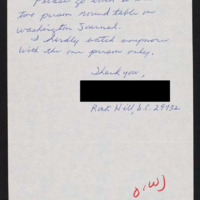 Please go back to a
two person round table on
Washington Journal.
I hardly watch anymore
with the one person only.
Thank you,
Rock Hill, S.C. 29732
O, WJ